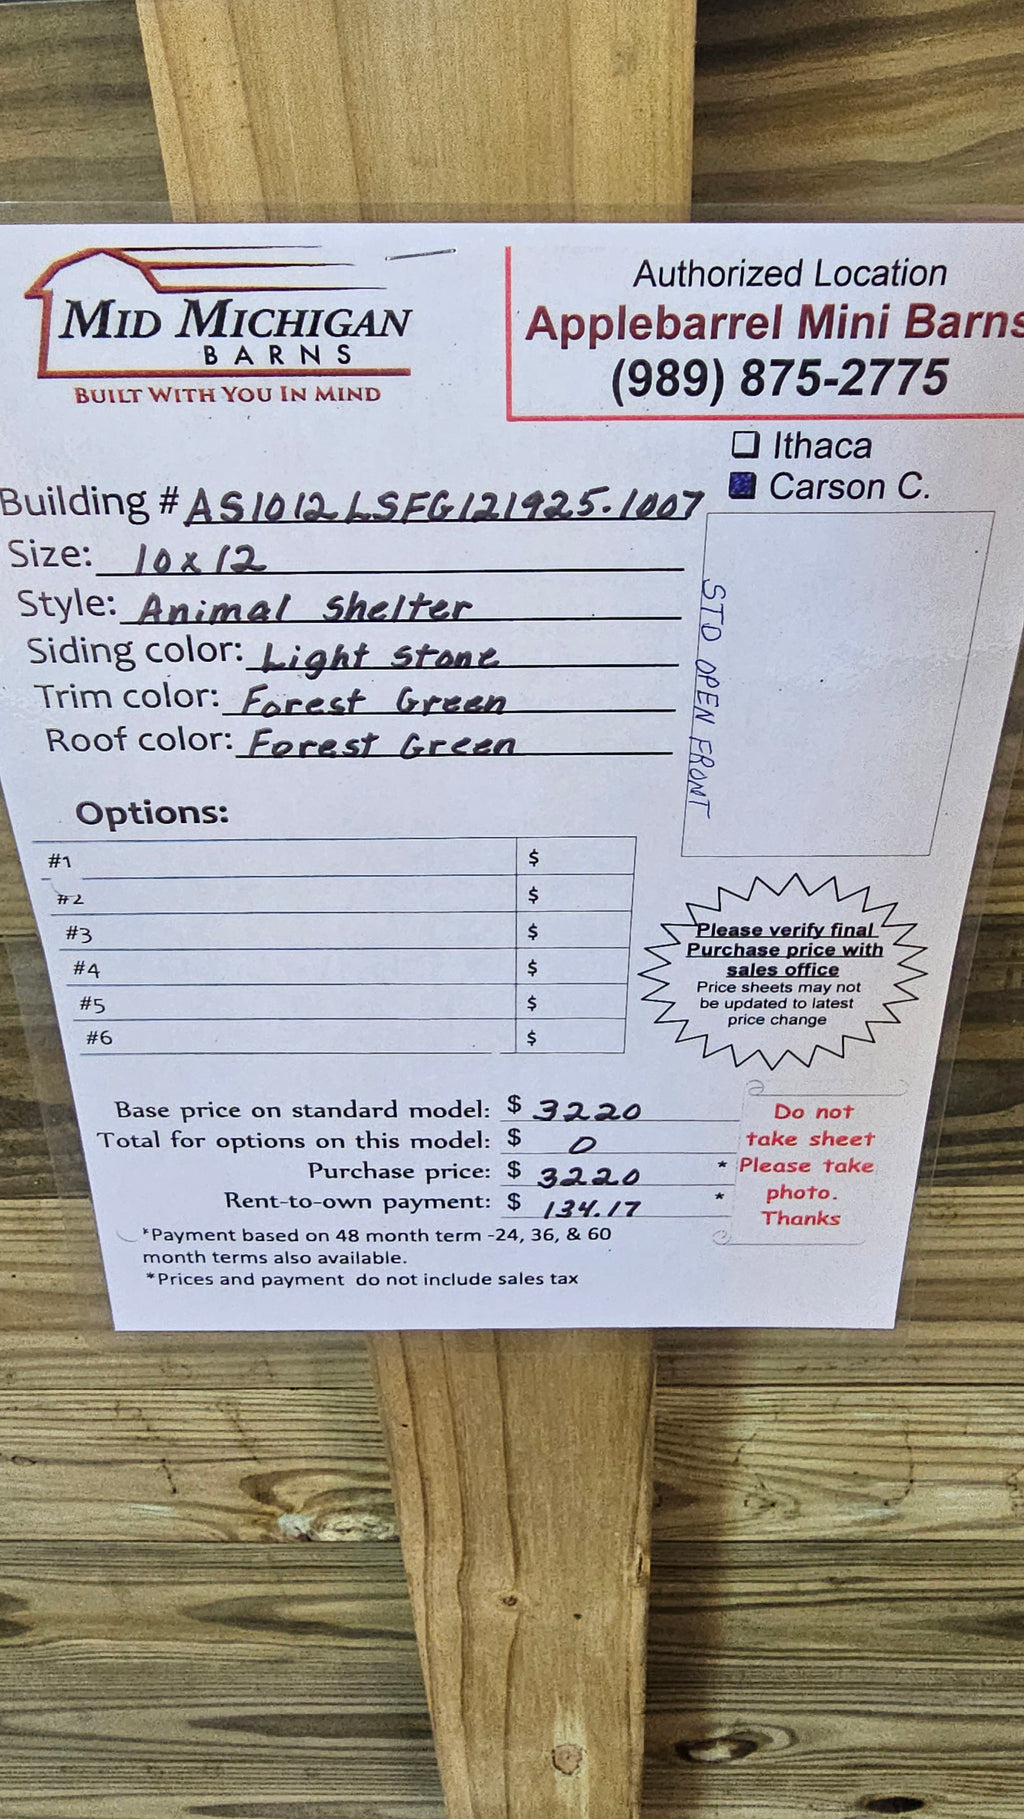 MID MICHIGAN
BARNS
BUILT WITH YOU IN MIND
Authorized Location
Applebarrel Mini Barns
(989) 875-2775
Ithaca
Carson C.
Building # AS1012LSFG121925.1007
Size: 10x12
Style: Animal Shelter
Siding color: Light Stone
Trim color: Forest Green
Roof color: Forest Green
STD OPEN FRONT
Options:
#1 $
#2 $
#3 $
#4 $
#5 $
#6 $
Please verify final
Purchase price with
sales office
Price sheets may not
be updated to latest
price change
Base price on standard model: $ 3220
Total for options on this model: $ 0
Purchase price: $ 3220 *
Rent-to-own payment: $ 134.17 *
Do not
take sheet
Please take
photo.
Thanks
*Payment based on 48 month term -24, 36, & 60
month terms also available.
*Prices and payment do not include sales tax